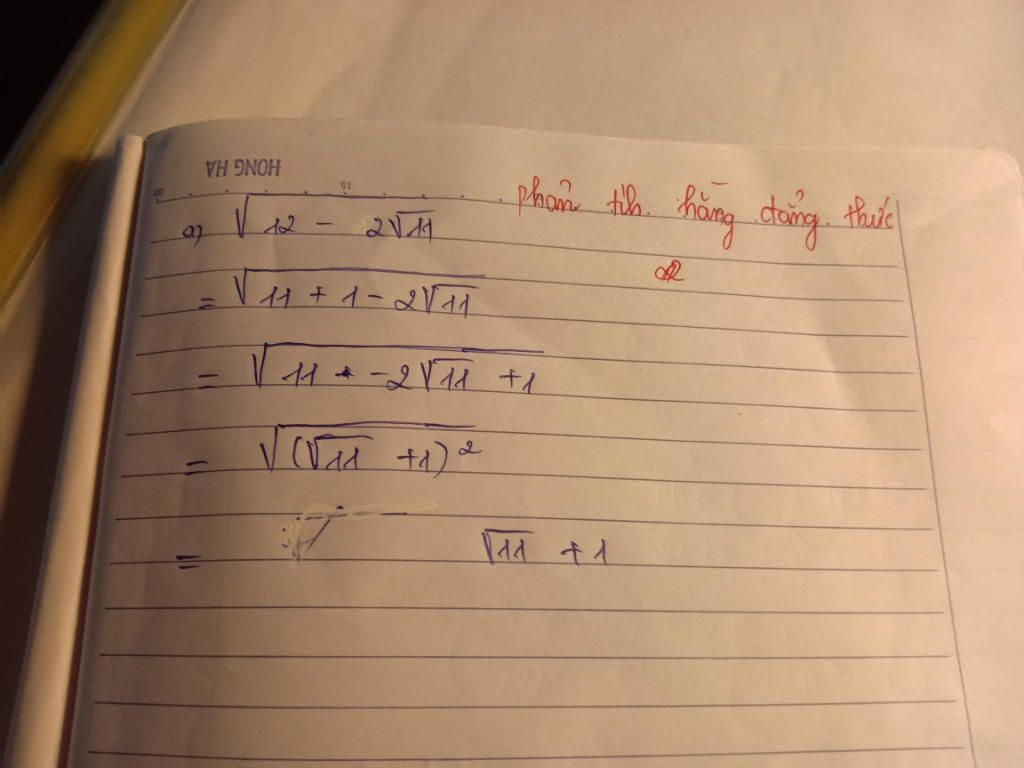 HONG HA
20 15
phân tih hằng đẳng thức
a) √12 - 2√11
2
= √11 + 1 - 2√11
= √11 - 2√11 + 1
= √(√11 + 1)²
= √11 + 1